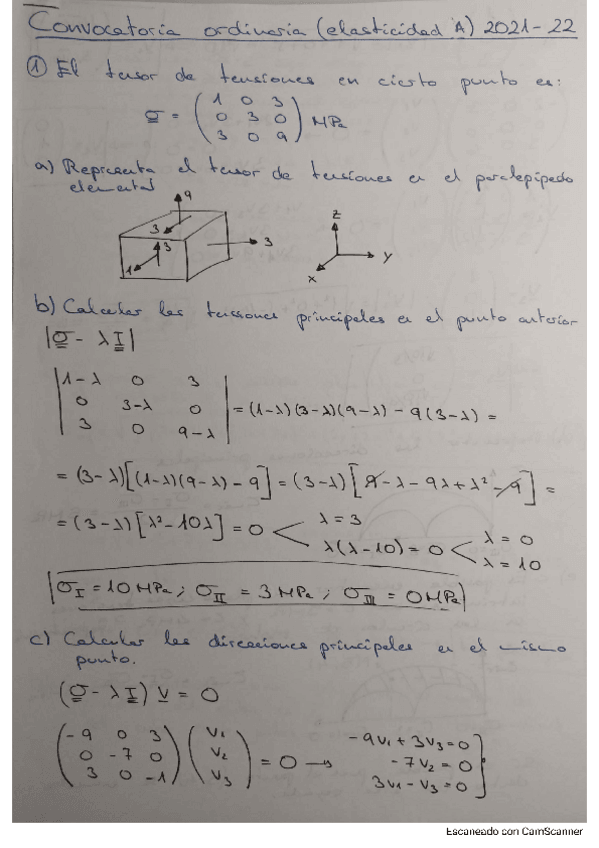 Convocatoria ordinaria (elasticidad A) 2021-22
① El tensor de tensiones en cierto punto es:
σ = ( 1 0 3
0 3 0
3 0 9 ) MPa
a) Representa el tensor de tensiones en el paralepípedo
elemental
9
3
3
3
1
z
y
x
b) Calcular las tensiones principales en el punto anterior
|σ - λI|
| 1-λ 0 3 |
| 0 3-λ 0 | = (1-λ)(3-λ)(9-λ) - 9(3-λ) =
| 3 0 9-λ |
= (3-λ)[(1-λ)(9-λ) - 9] = (3-λ)[9 - λ - 9λ + λ² - 9] =
= (3-λ)[λ² - 10λ] = 0 < λ = 3
λ(λ-10) = 0 < λ = 0
λ = 10
|σI = 10 MPa ; σII = 3 MPa ; σIII = 0 MPa|
c) Calcular las direcciones principales en el mismo
punto.
(σ - λI) v = 0
( -9 0 3 ) ( v1 ) -9v1 + 3v3 = 0
( 0 -7 0 ) ( v2 ) = 0 → -7v2 = 0
( 3 0 -1 ) ( v3 ) 3v1 - v3 = 0
Escaneado con CamScanner